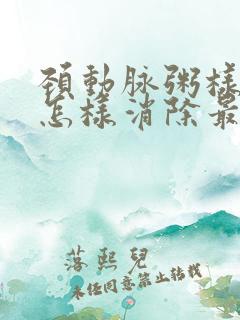 頚動脉粥樣
怎樣消除最
落熙兒
未經同意禁止轉載